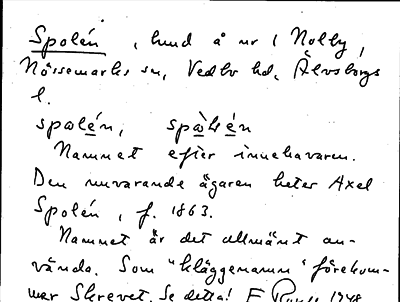 Spolén, hmd å nr 1 Nolby,
Nössemarks sn, Vedbo hd, Älvsborgs
l.
spolén, spòlén
Namnet efter innehavaren.
Den nuvarande ägaren heter Axel
Spolén, f. 1863.
Namnet är det allmänt an-
vända. Som "kläggenamn" förekom-
mer Skrevet. Se detta! F 1948